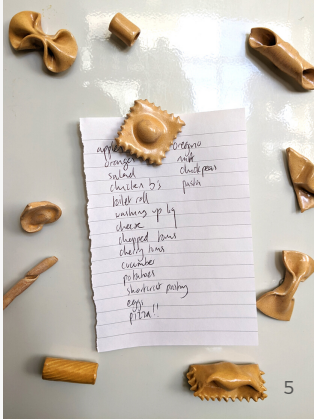 apples
orange
salad
chicken b's
toilet roll
washing up liq
cheese
chopped toms
cherry toms
cucumber
potatoes
shortcrust pastry
eggs
pizza!!
oregano
milk
chickpeas
pasta
5